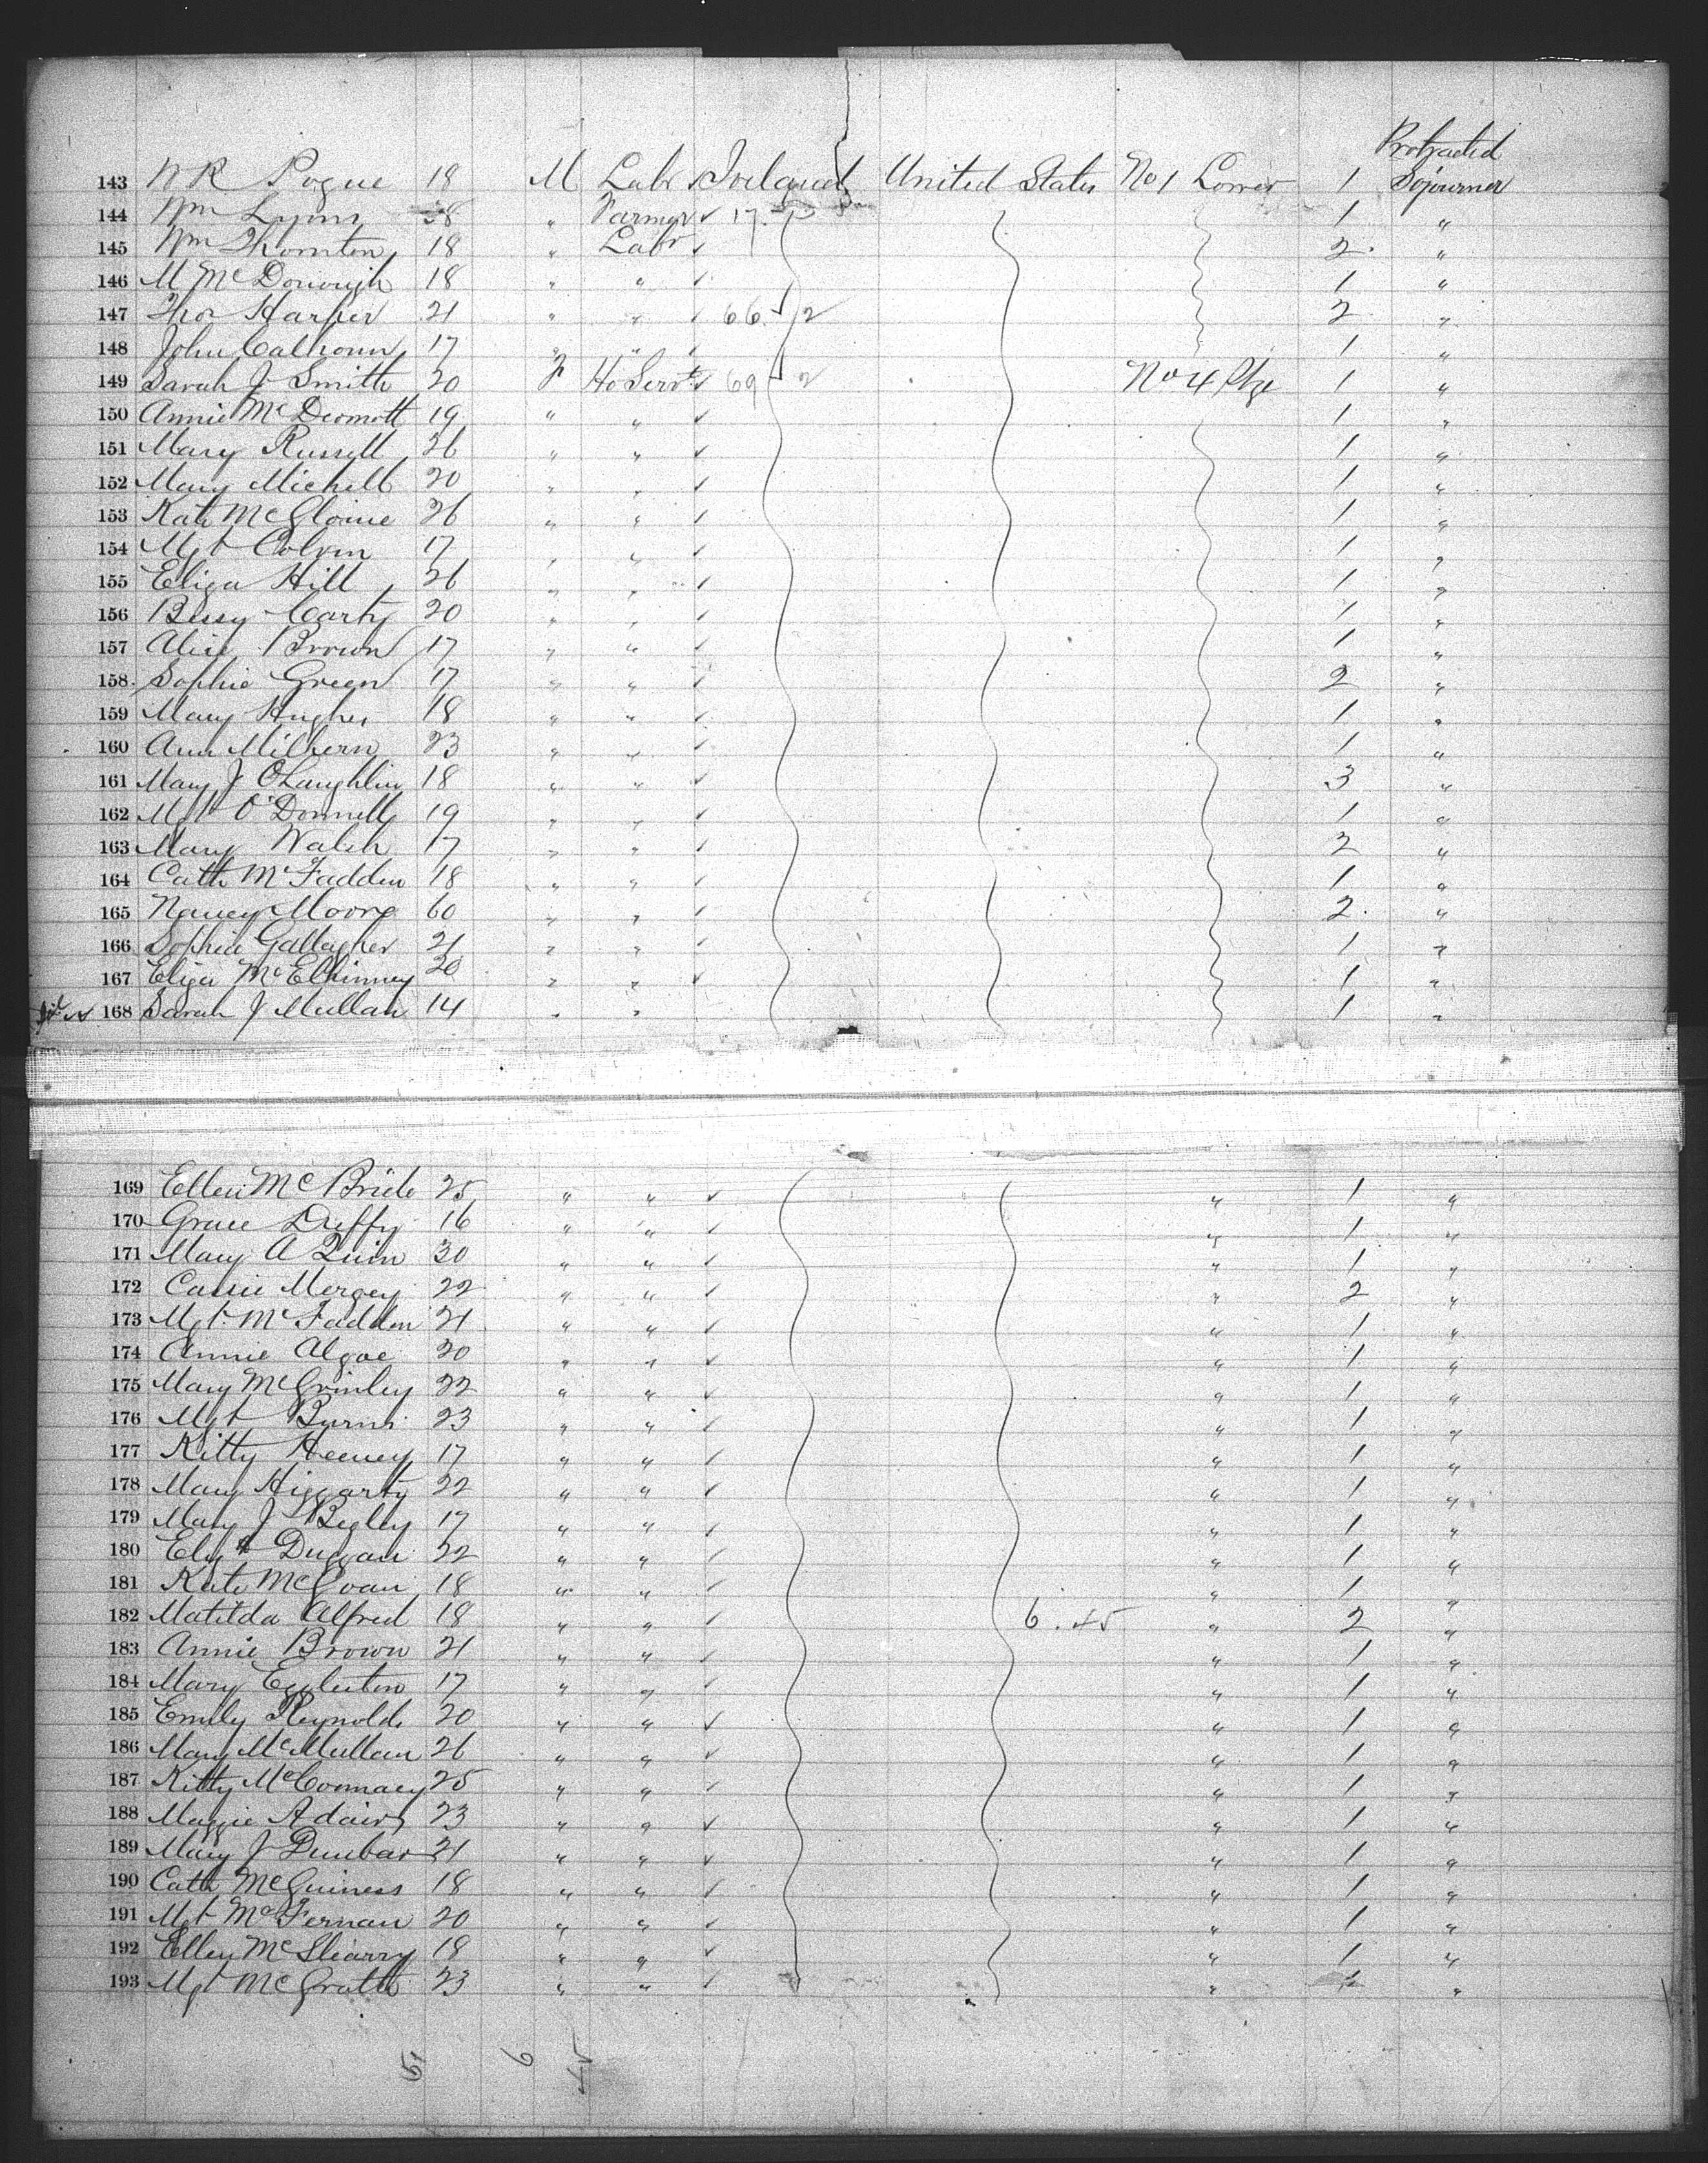 Protracted
143 W R Pogue 18 M Labr ✓ Ireland United States No 1 Lower 1 Sojourner
144 Wm Lyons 38 " Farmer ✓ 17 1 "
145 Wm Thornton 18 " Labr ✓ 2 "
146 M McDonough 18 " " ✓ 1 "
147 Thos Harper 21 " " ✓ 66 2 2 "
148 John Calhoun 17 " " ✓ 1 "
149 Sarah J Smith 20 F Ho Servt ✓ 69 2 No 4 Stge 1 "
150 Annie McDermott 19 " " ✓ 1 "
151 Mary Russell 26 " " ✓ 1 "
152 Mary Michell 20 " " ✓ 1 "
153 Kate McGloine 26 " " ✓ 1 "
154 Mgt Colvin 17 " " ✓ 1 "
155 Eliza Hill 26 " " ✓ 1 "
156 Bessy Carty 20 " " ✓ 1 "
157 Alice Brown 17 " " ✓ 1 "
158 Sophie Green 17 " " ✓ 2 "
159 Mary Hughes 18 " " ✓ 1 "
160 Ann Milhern 23 " " ✓ 1 "
161 Mary J O'Laughlin 18 " " ✓ 3 "
162 Mgt O'Donnell 19 " " ✓ 1 "
163 Mary Walsh 17 " " ✓ 2 "
164 Cath McFadden 18 " " ✓ 1 "
165 Nancy Moore 60 " " ✓ 2 "
166 Sophia Gallagher 21 " " ✓ 1 "
167 Eliza McElhinney 20 " " ✓ 1 "
168 Sarah J Mullan 14 " " 1 "
169 Ellen McBride 25 " " ✓ " 1 "
170 Grace Duffy 16 " " ✓ " 1 "
171 Mary A Quin 30 " " ✓ " 1 "
172 Cassie Mergey 22 " " ✓ " 2 "
173 Mgt McFadden 21 " " ✓ " 1 "
174 Annie Algoe 20 " " ✓ " 1 "
175 Mary McGrinley 22 " " ✓ " 1 "
176 Mgt Burns 23 " " ✓ " 1 "
177 Kitty Heeney 17 " " ✓ " 1 "
178 Mary Higgarty 22 " " ✓ " 1 "
179 Mary J Begley 17 " " ✓ " 1 "
180 Elizt Duggan 22 " " ✓ " 1 "
181 Kate McGoan 18 " " ✓ " 1 "
182 Matilda Alfred 18 " " ✓ 6.45 " 2 "
183 Annie Brown 21 " " ✓ " 1 "
184 Mary Eggleton 17 " " ✓ " 1 "
185 Emily Reynolds 20 " " ✓ " 1 "
186 Mary McMullan 26 " " ✓ " 1 "
187 Kitty McConnaey 25 " " ✓ " 1 "
188 Maggie Adair 23 " " ✓ " 1 "
189 Mary J Dunbar 21 " " ✓ " 1 "
190 Cath McGuiness 18 " " ✓ " 1 "
191 Mgt McFernan 20 " " ✓ " 1 "
192 Ellen McSliarry 18 " " ✓ " 1 "
193 Mgt McGrath 23 " " ✓ " 1 "
51 6 45